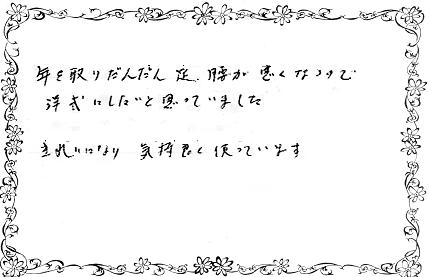 年を取りだんだん足、腰が悪くなるので
洋式にしたいと思っていました
きれいになり 気持良く使っています